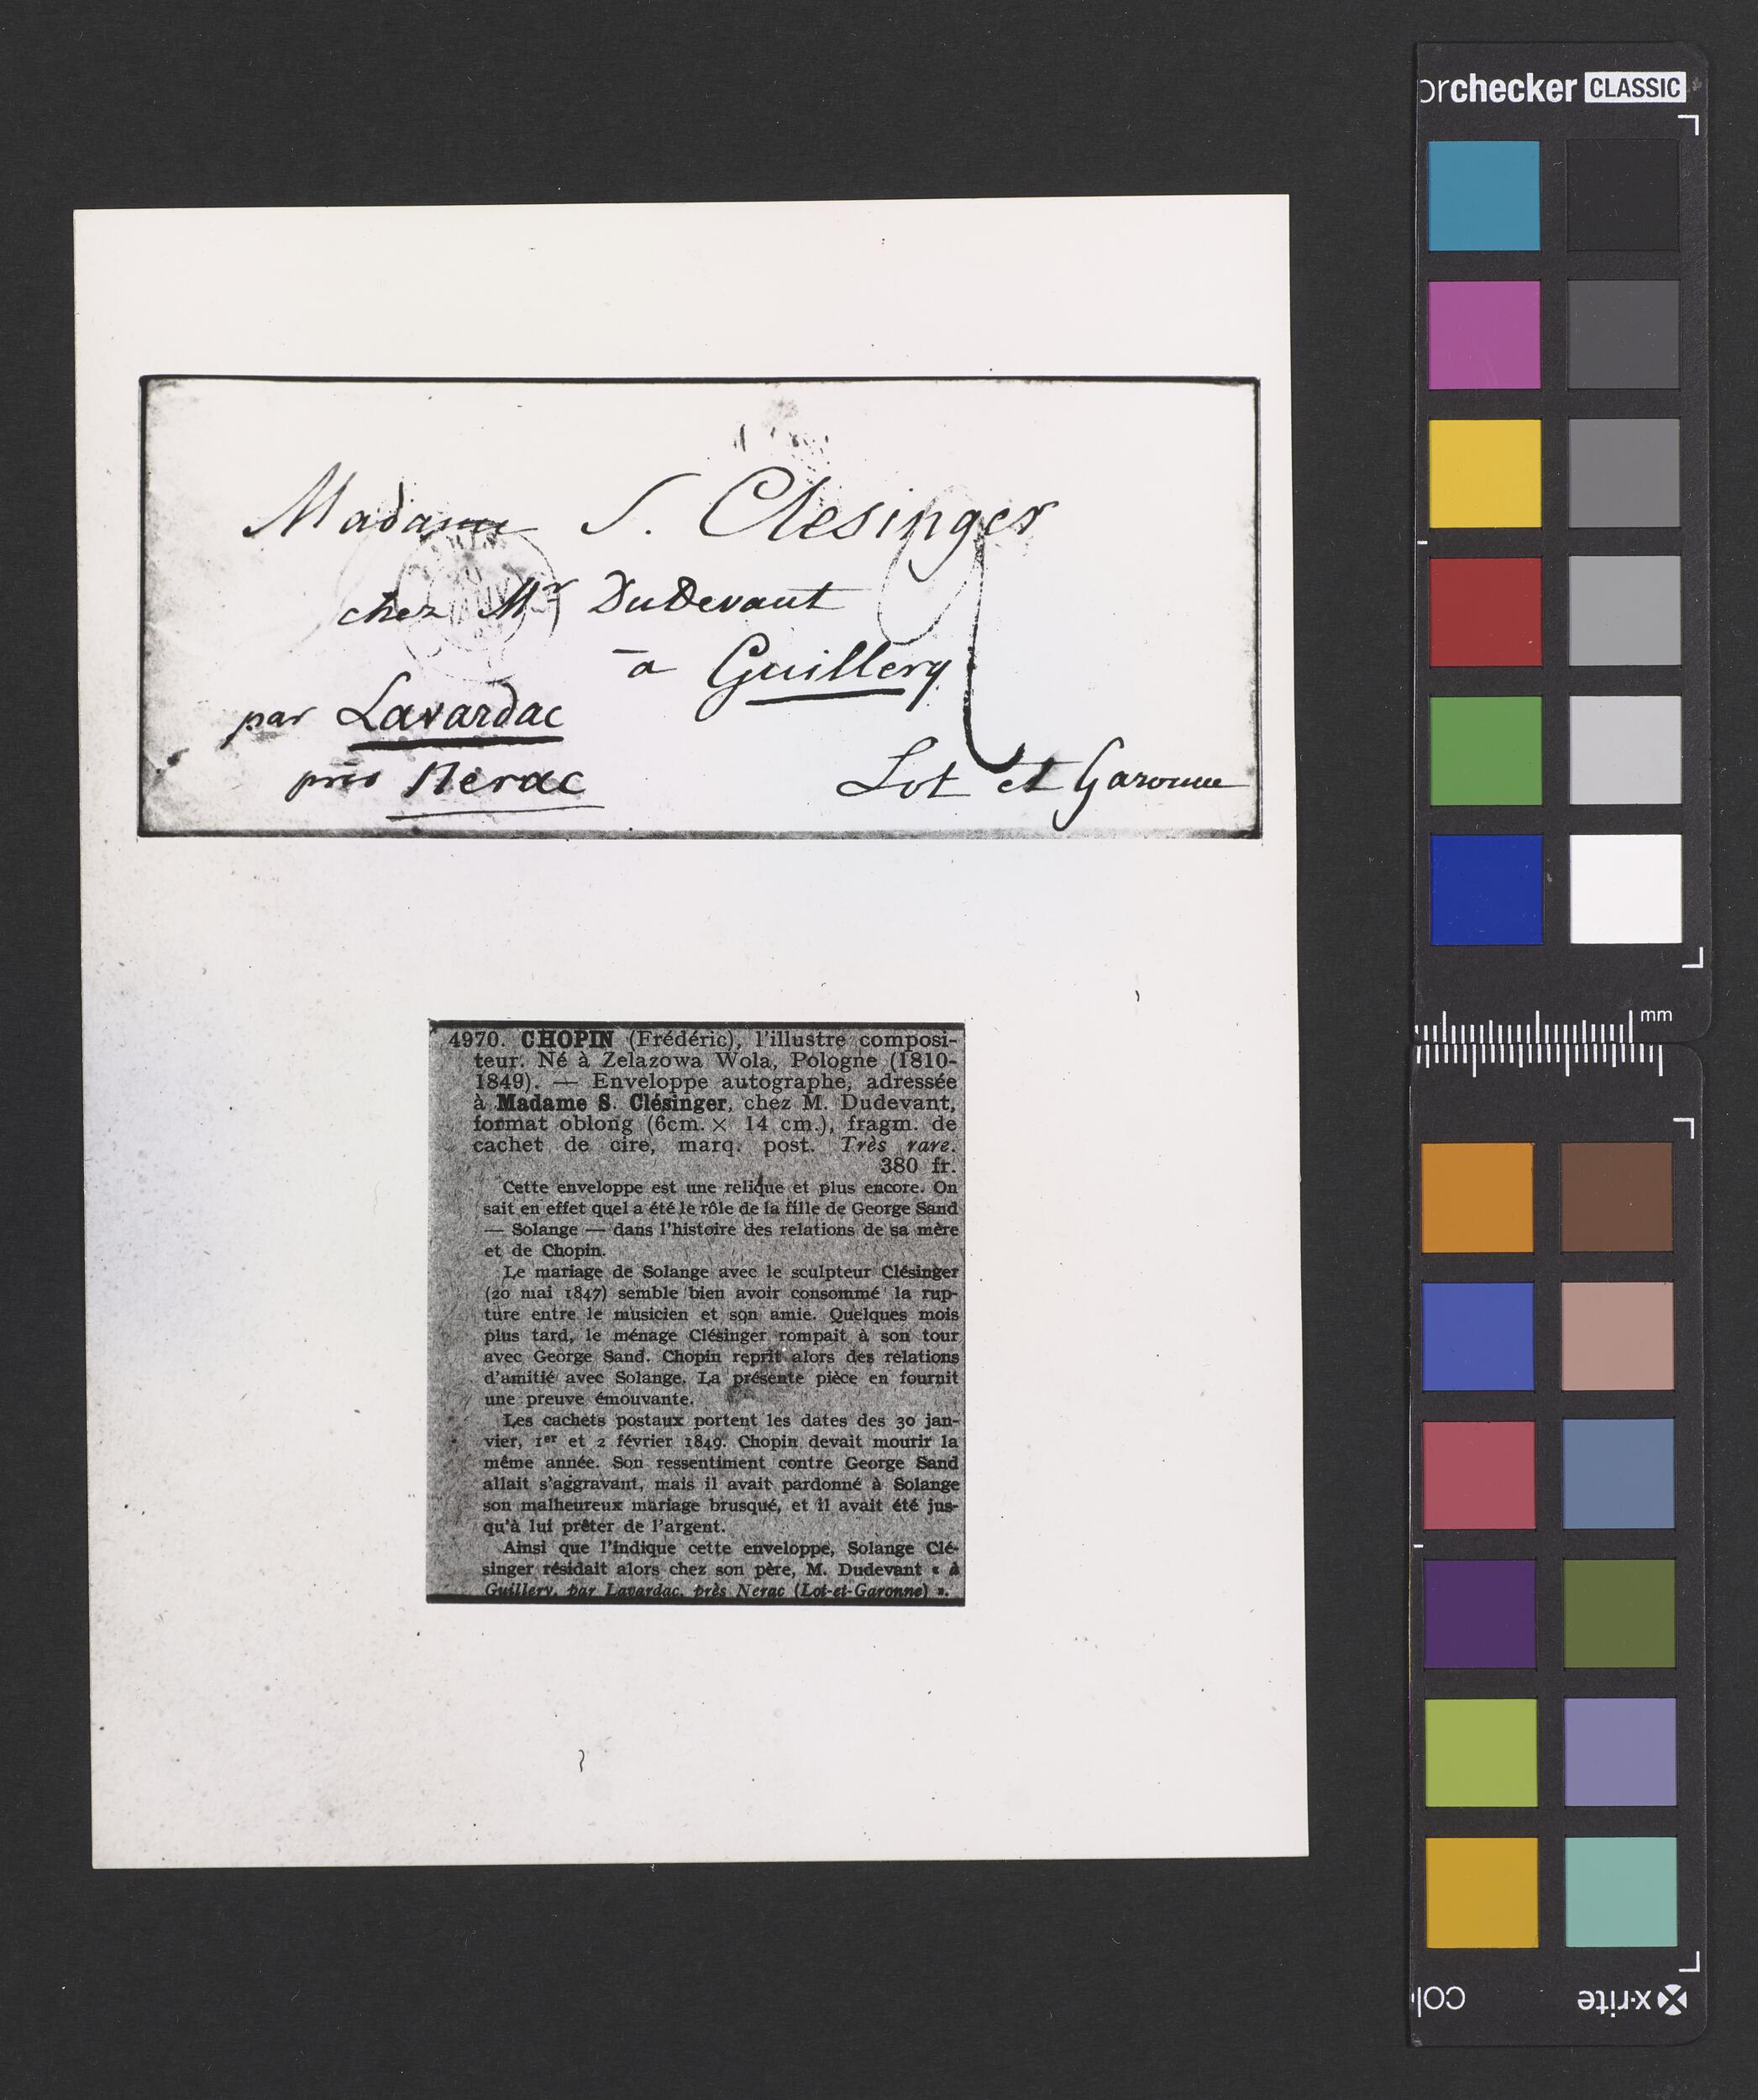 orchecker CLASSIC
Madame S. Clesinger
chez Mr DuDevant
a Guillery
par Lavardac
près Nerac
Lot et Garonne
mm
4970. CHOPIN (Frédéric), l'illustre composi-
teur. Né à Zelazowa Wola, Pologne (1810-
1849). — Enveloppe autographe, adressée
à Madame S. Clésinger, chez M. Dudevant,
format oblong (6cm. × 14 cm.), fragm. de
cachet de cire, marq. post. Très rare.
380 fr.
Cette enveloppe est une relique et plus encore. On
sait en effet quel a été le rôle de la fille de George Sand
— Solange — dans l'histoire des relations de sa mère
et de Chopin.
Le mariage de Solange avec le sculpteur Clésinger
(20 mai 1847) semble bien avoir consommé la rup-
ture entre le musicien et son amie. Quelques mois
plus tard, le ménage Clésinger rompait à son tour
avec George Sand. Chopin reprit alors des relations
d'amitié avec Solange. La présente pièce en fournit
une preuve émouvante.
Les cachets postaux portent les dates des 30 jan-
vier, 1er et 2 février 1849. Chopin devait mourir la
même année. Son ressentiment contre George Sand
allait s'aggravant, mais il avait pardonné à Solange
son malheureux mariage brusqué, et il avait été jus-
qu'à lui prêter de l'argent.
Ainsi que l'indique cette enveloppe, Solange Clé-
singer résidait alors chez son père, M. Dudevant « à
Guillery, par Lavardac, près Nerac (Lot-et-Garonne) ».
x-rite
col